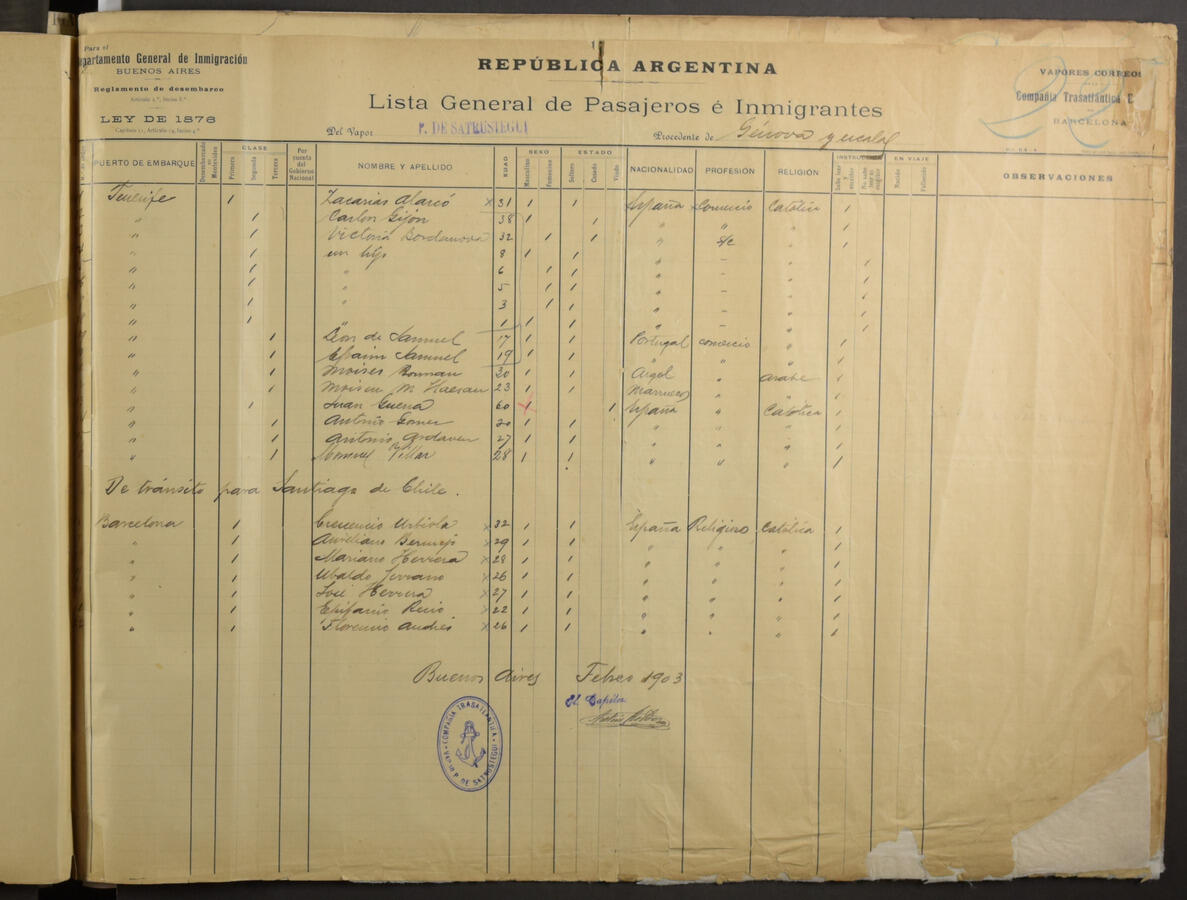 Para el
epartamento General de Inmigración
BUENOS AIRES
Reglamento de desembarco
Artículo 2.º, Inciso 8.º
LEY DE 1876
Capítulo 11, Artículo 14, Inciso 4.º
REPÚBLICA ARGENTINA
Lista General de Pasajeros é Inmigrantes
Del Vapor P. DE SATRÚSTEGUI Procedente de Génova y escalas
22
VAPORES CORREOS
Compañía Trasatlántica E
BARCELONA
PUERTO DE EMBARQUE Desembarcado en Montevideo CLASE Primera Segunda Tercera Por cuenta del Gobierno Nacional NOMBRE Y APELLIDO EDAD SEXO Masculino Femenino ESTADO Soltero Casado Viudo NACIONALIDAD PROFESIÓN RELIGIÓN INSTRUC Sabe leer y escribir No sabe leer ni escribir EN VIAJE Nacido Fallecido OBSERVACIONES
Tenerife 1 Zacarias Alarcó x 31 1 1 España Comercio Católica 1
" 1 Carlos Gijón 38 1 1 " " " 1
" 1 Victoria 32 1 1 " s/c " 1
" 1 un hijo 8 1 1 " - " 1
" 1 " 6 1 1 " - " 1
" 1 " 5 1 1 " - " 1
" 1 " 3 1 1 " - " 1
" 1 " 1 1 1 " - " 1
" 1 León de Samuel 17 1 1 Portugal comercio " 1
" 1 Efraim Samuel 19 1 1 " " " 1
" 1 Moises 30 1 1 Argel " arabe 1
" 1 M. Hassan 23 1 1 Marruecos " " 1
" 1 Juan Guerra 60 1 1 España " Católica 1
" 1 Antonio Gomez 20 1 1 " " " 1
" 1 Antonio 27 1 1 " " " 1
" 1 Manuel Villar 28 1 1 " " " 1
De tránsito para Santiago de Chile.
Barcelona 1 Crecencio Urbiola x 32 1 1 España Religioso Católica 1
" 1 Aureliano Bermejo x 29 1 1 " " " 1
" 1 Mariano Herrera x 28 1 1 " " " 1
" 1 Ubaldo Serrano x 26 1 1 " " " 1
" 1 José Herrera x 27 1 1 " " " 1
" 1 Epifanio x 22 1 1 " " " 1
" 1 Florencio Andrés x 26 1 1 " " " 1
Buenos Aires Febro 1903
El Capitán
COMPAÑÍA TRASATLÁNTICA
VAPOR P. DE SATRÚSTEGUI